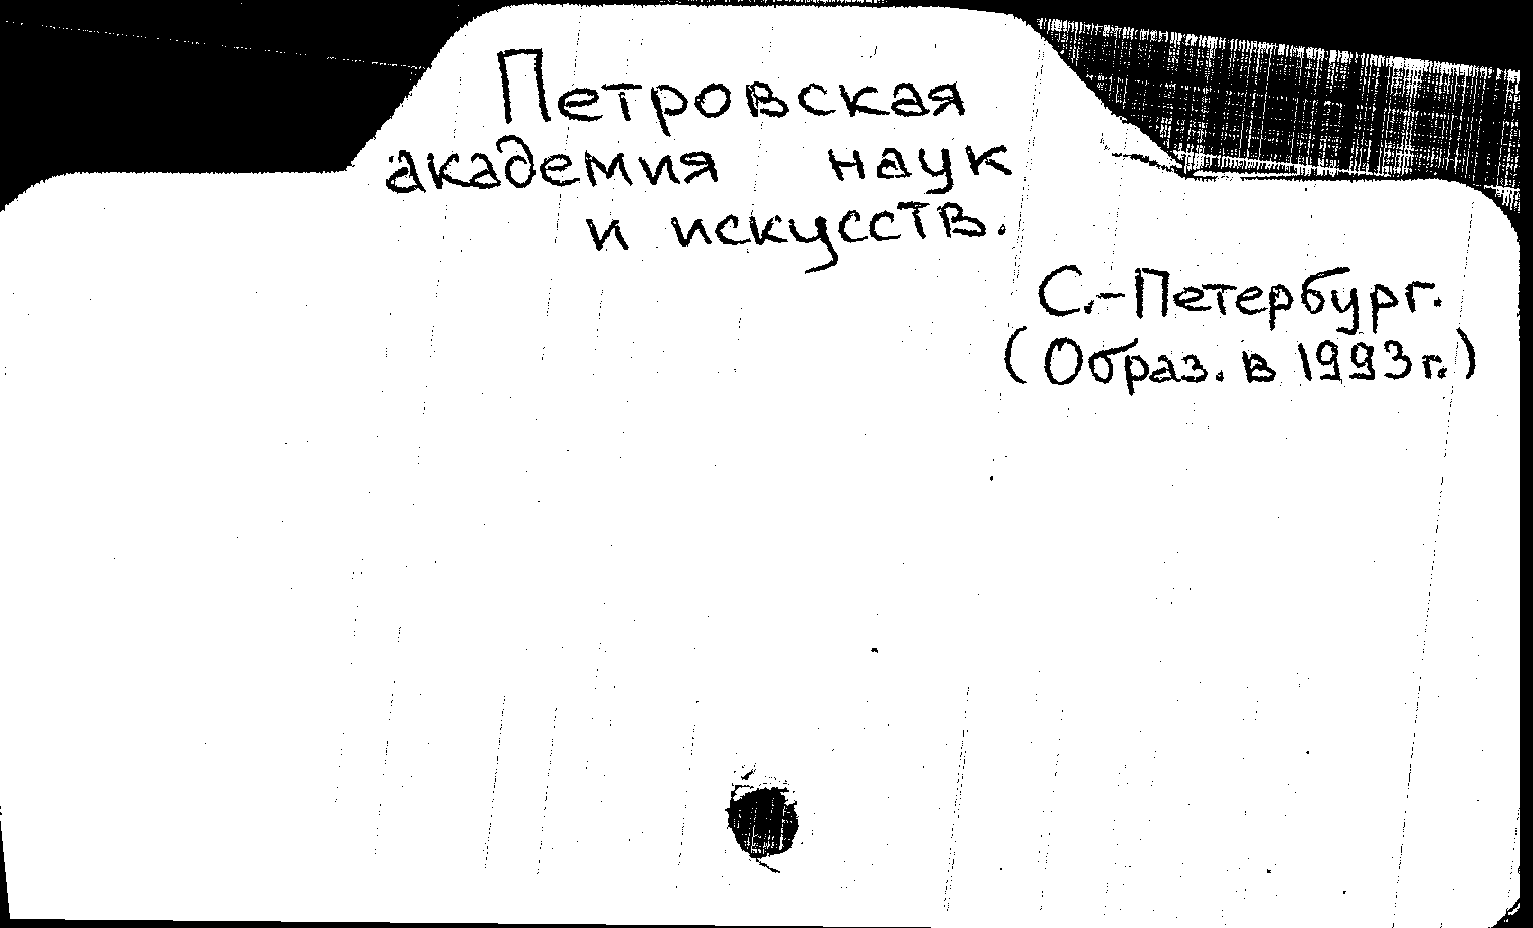 Петровская
академия наук
и искусств.
С.-Петербург.
(Образ. в 1993г.)